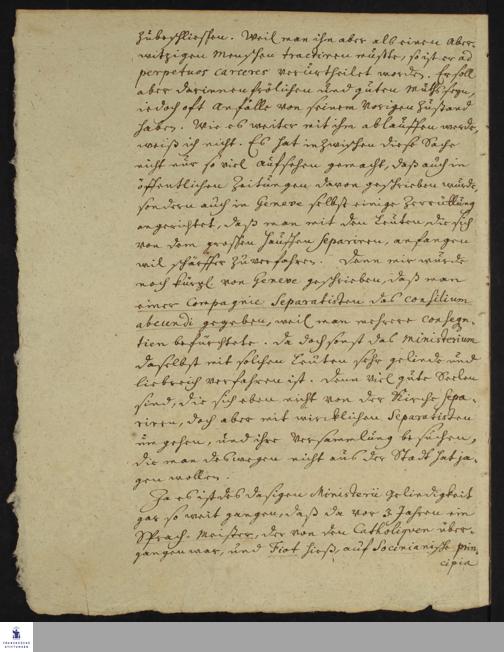 zubeschliessen. Weil man ihn aber als einen Aber-
witzigen Menschen tractiren müste, so ist er ad
perpetuos carceres verurtheilet worden. Er soll
aber darinnen frölichen und guten Muths seyn,
iedoch oft Anfälle von seinem vorigen Zustand
haben. Wie es weiter mit ihm ablauffen werde,
weiß ich nicht. Es hat inzwischen diese Sache
nicht nur so viel aufsehen gemacht, daß auch in
öffentlichen Zeitungen davon geschrieben wurde,
sondern auch in Geneve selbst einige Zerrüttung
angerichtet, daß man mit den Leuten, die sich
von dem grossen Hauffen separiren, anfangen
wil schärffer zuverfahren. Denn mir wurde
noch kürzl. von Geneve geschrieben, daß man
einer Compagnie Separatisten das consilium
abeundi gegeben, weil man mehrere conseqen-
tien befürchtete. Da doch sonst das Ministerium
daselbst mit solchen Leuten sehr gelinde und
liebreich verfahren ist. Denn viel gute Seelen
sind, die sich eben nicht von der Kirche sepa-
riren, doch aber mit wircklichen Separatisten
umgehen, und ihre Versammlung besuchen,
die man deswegen nicht aus der Stadt hat ja-
gen wollen.
Ja es ist des dasigen Ministerii Gelindigkeit
gar so weit gangen, daß da vor 3 Jahren ein
Sprach-Meister, der von den Catholiquen über-
gangen war, und Fiot hieß, auf Socinianische prin-
cipia
FRANCKESCHE
STIFTUNGEN